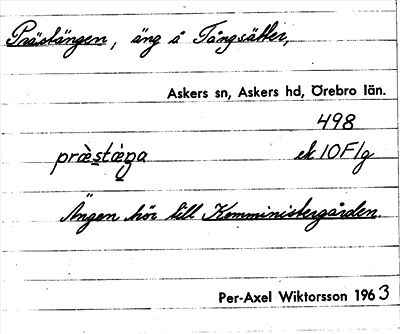 Prästängen, äng å Tångsätter,
Askers sn, Askers hd, Örebro län.
498
præ̀stæ̀ŋa ek 10F1g
Ängen hör till Komministergården.
Per-Axel Wiktorsson 1963